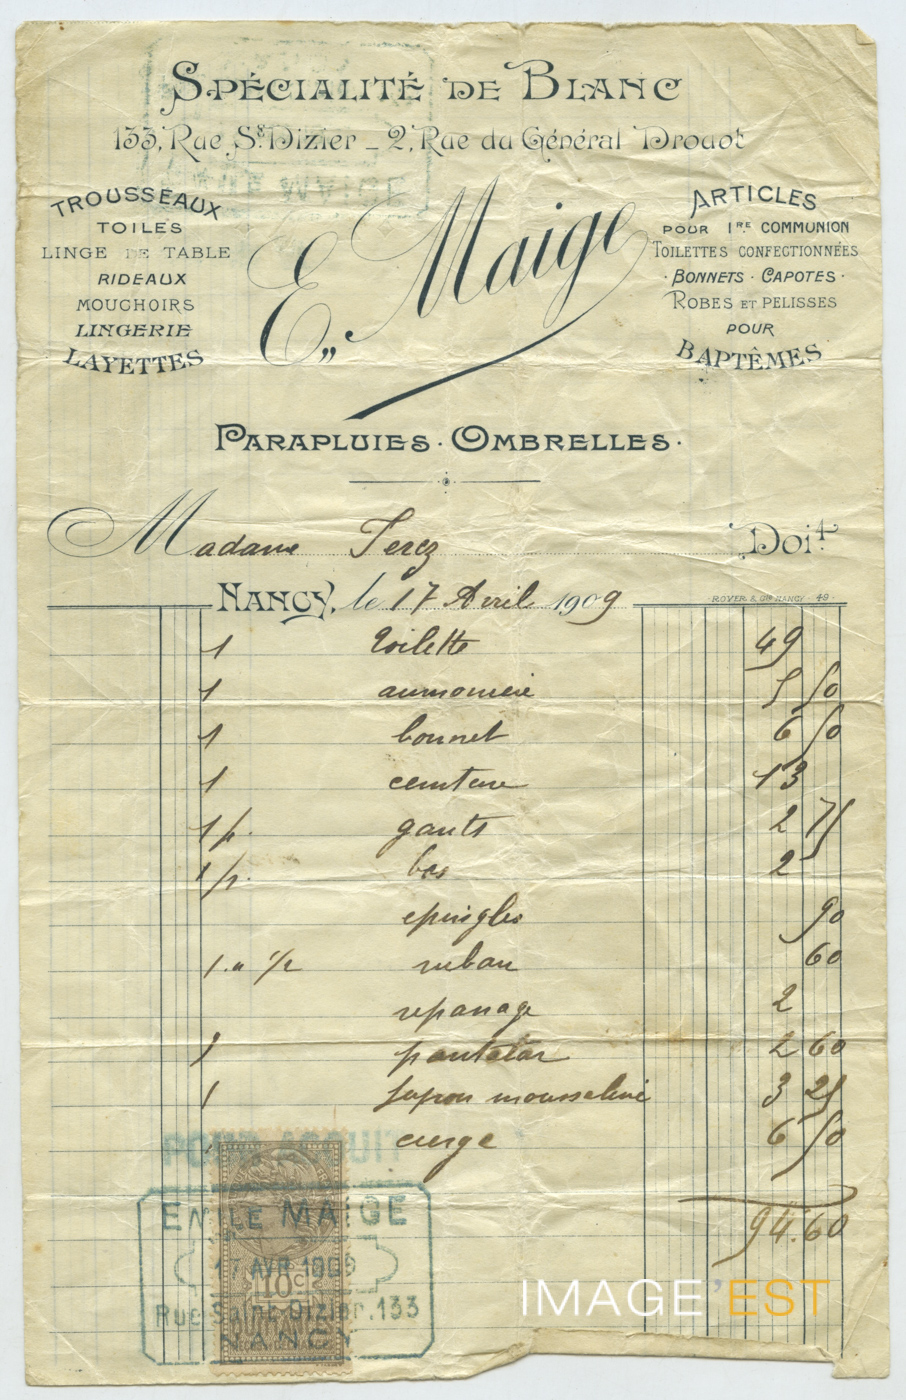 SPÉCIALITÉ DE BLANC
133, Rue St Dizier _ 2, Rue du Général Drouot
TROUSSEAUX
TOILES
LINGE DE TABLE
RIDEAUX
MOUCHOIRS
LINGERIE
LAYETTES
E. Maige
ARTICLES
POUR 1RE COMMUNION
TOILETTES CONFECTIONNÉES
·BONNETS·CAPOTES·
ROBES ET PELISSES
POUR
BAPTÊMES
PARAPLUIES·OMBRELLES·
Madame Doit
NANCY, le 17 Avril 1909
ROYER & CIE NANCY - 49 -
1 toilette 49
1 aumoniere 5 50
1 bonnet 6 50
1 ceinture 13
1 p. gants 2 75
1 p. bas 2
epingles 90
1.m 1/2 ruban 60
2
1 pantalon 2 60
1 jupon mousseline 3 25
cierge 6 50
94.60
POUR ACQUIT
EMILE MAIGE
17 AVR 1909
10c
Rue Saint-Dizier, 133
NANCY
IMAGE'EST